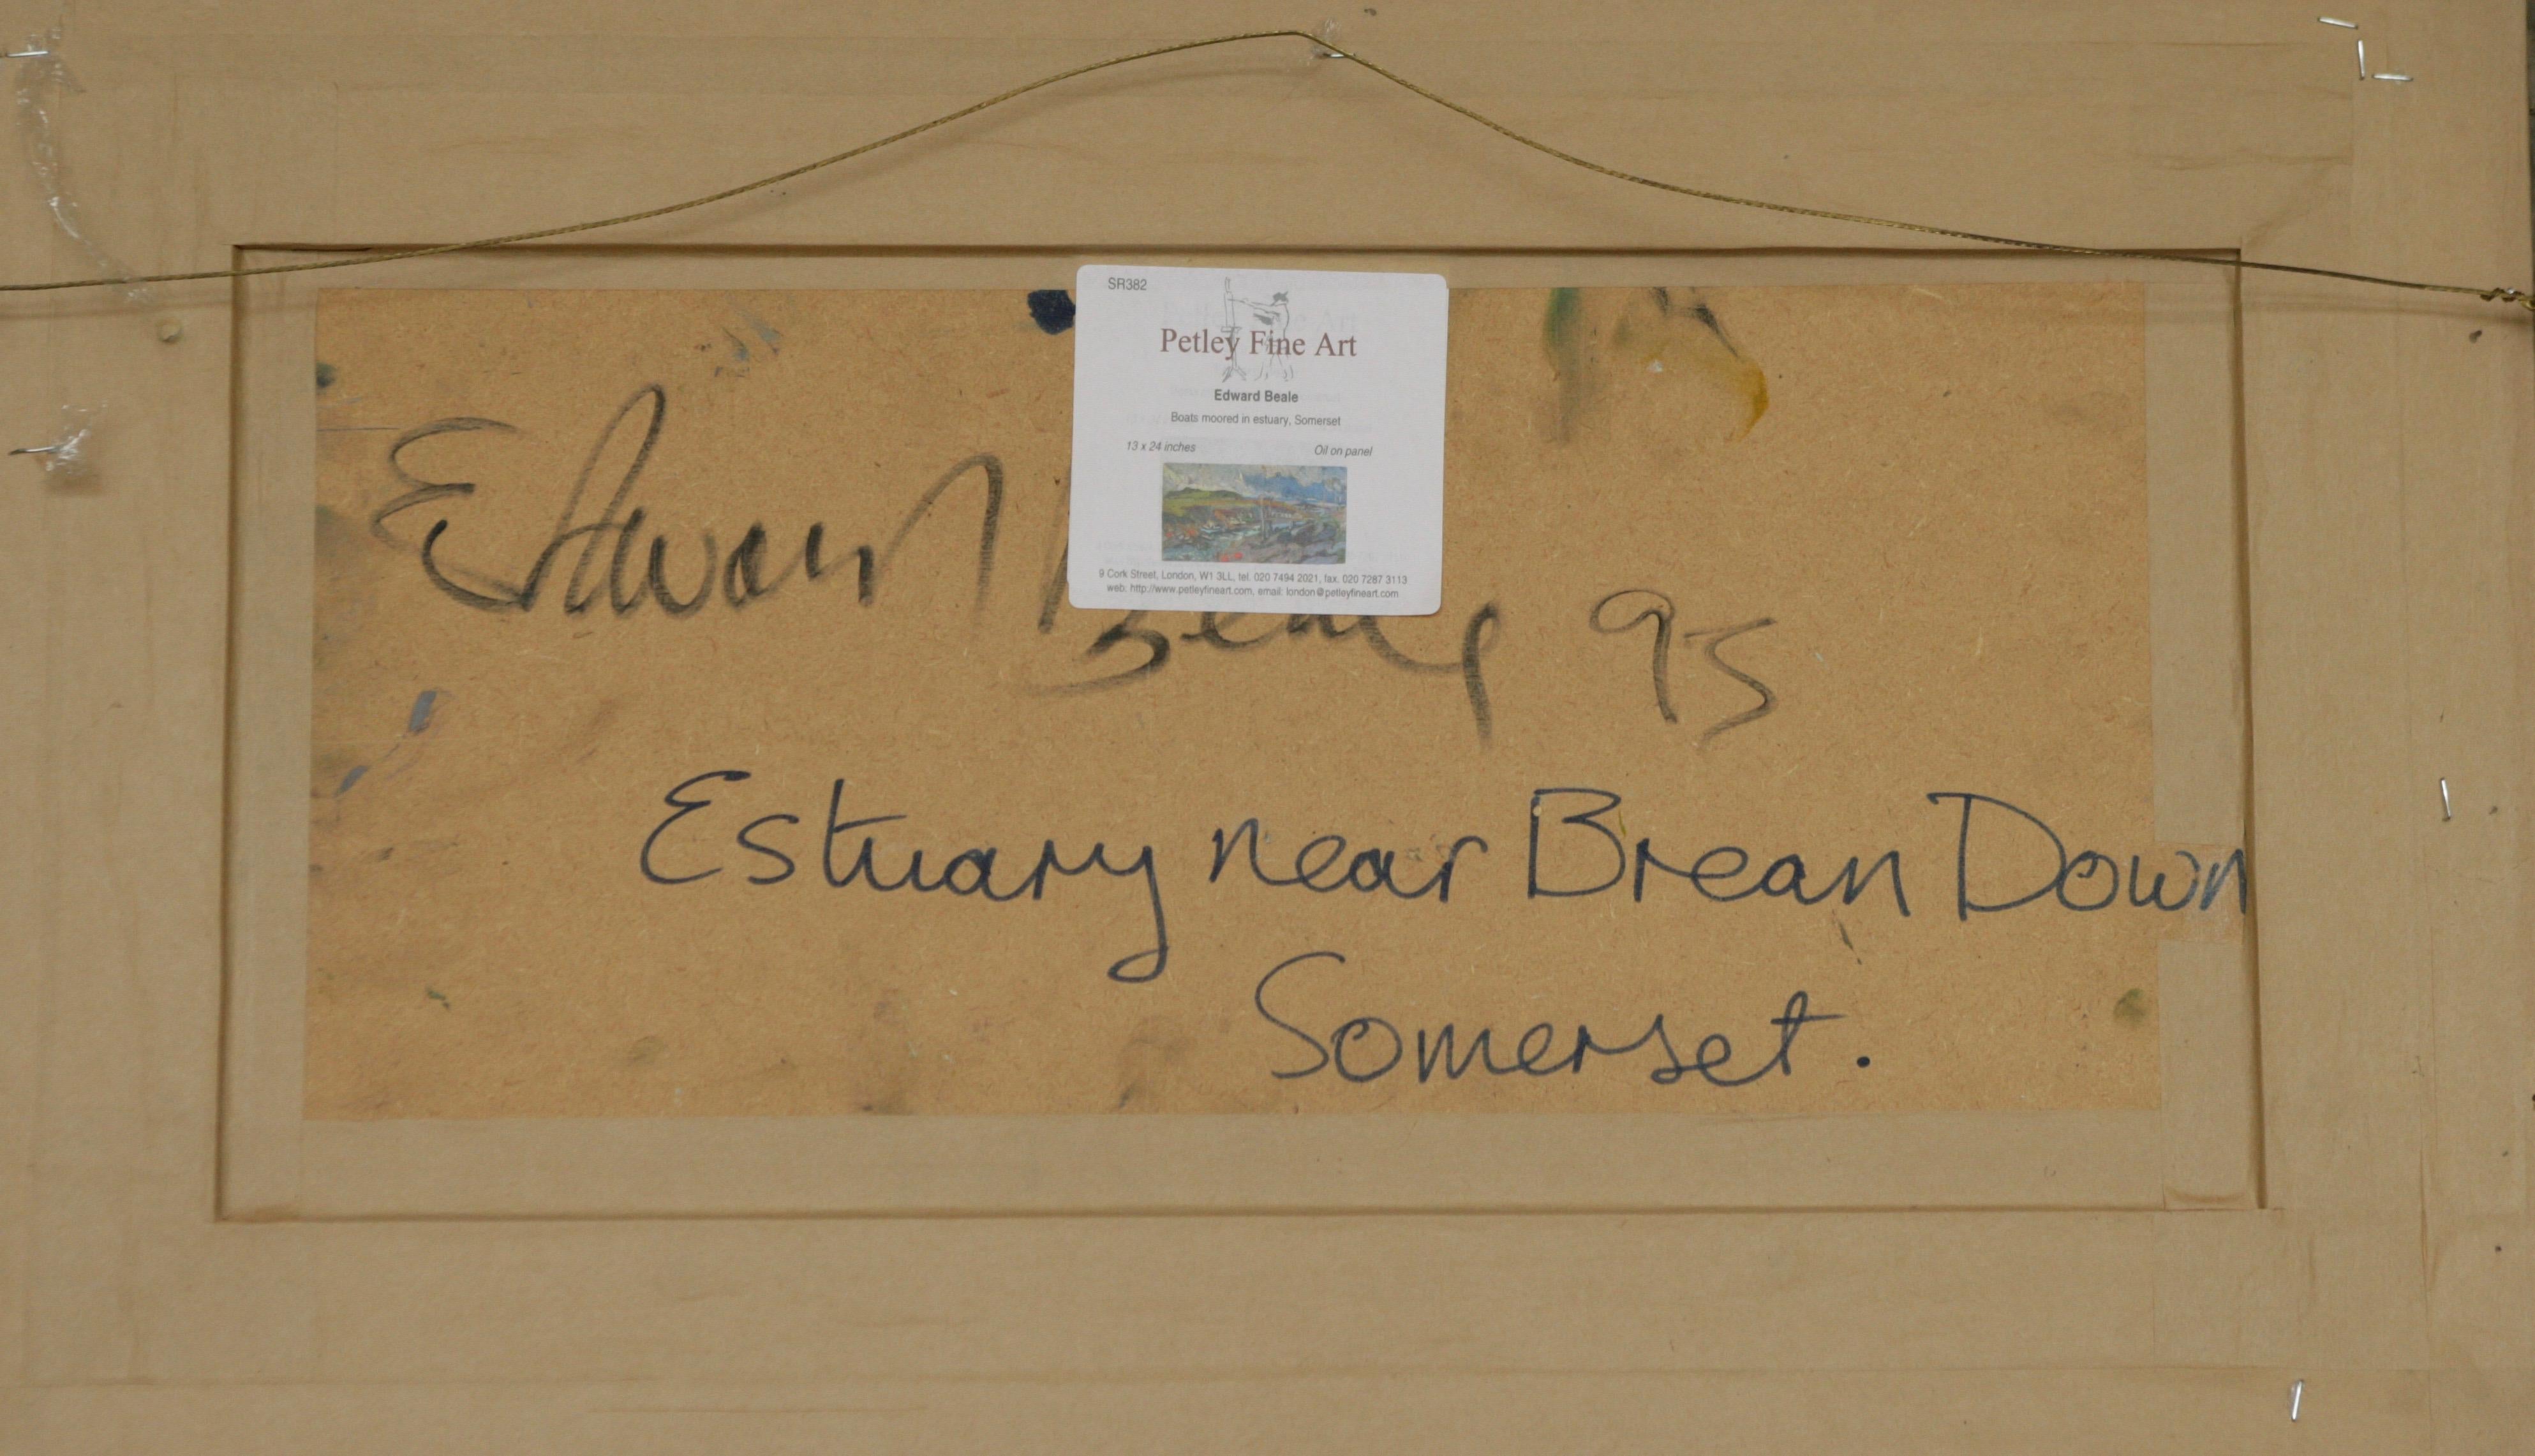 SR382
Petley Fine Art
Edward Beale
Boats moored in estuary, Somerset
13 x 24 inches Oil on panel
9 Cork Street, London, W1 3LL, tel. 020 7494 2021, fax. 020 7287 3113
web: http://www.petleyfineart.com, email: london@petleyfineart.com
Edward Beale 95
Estuary near Brean Down
Somerset.